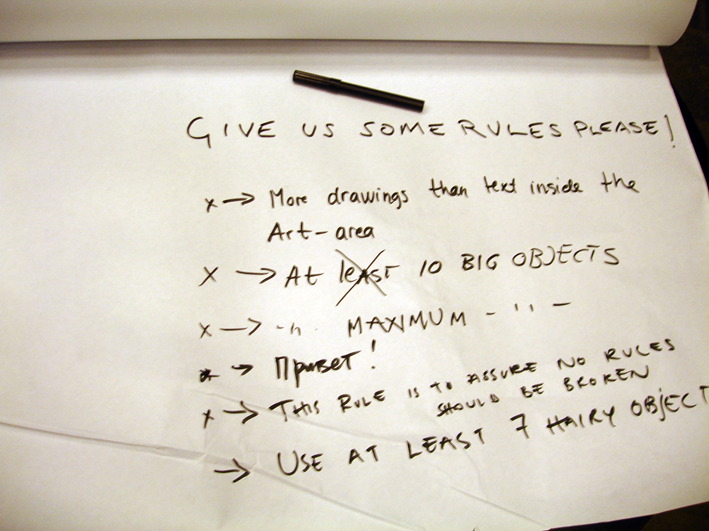 GIVE US SOME RULES PLEASE!
x → More drawings than text inside the
Art-area
X → At least 10 BIG OBJECTS
x → -"- MAXIMUM - " -
* → Привет!
x → THIS RULE IS TO ASSURE NO RULES
SHOULD BE BROKEN
→ USE AT LEAST 7 HAIRY OBJECT